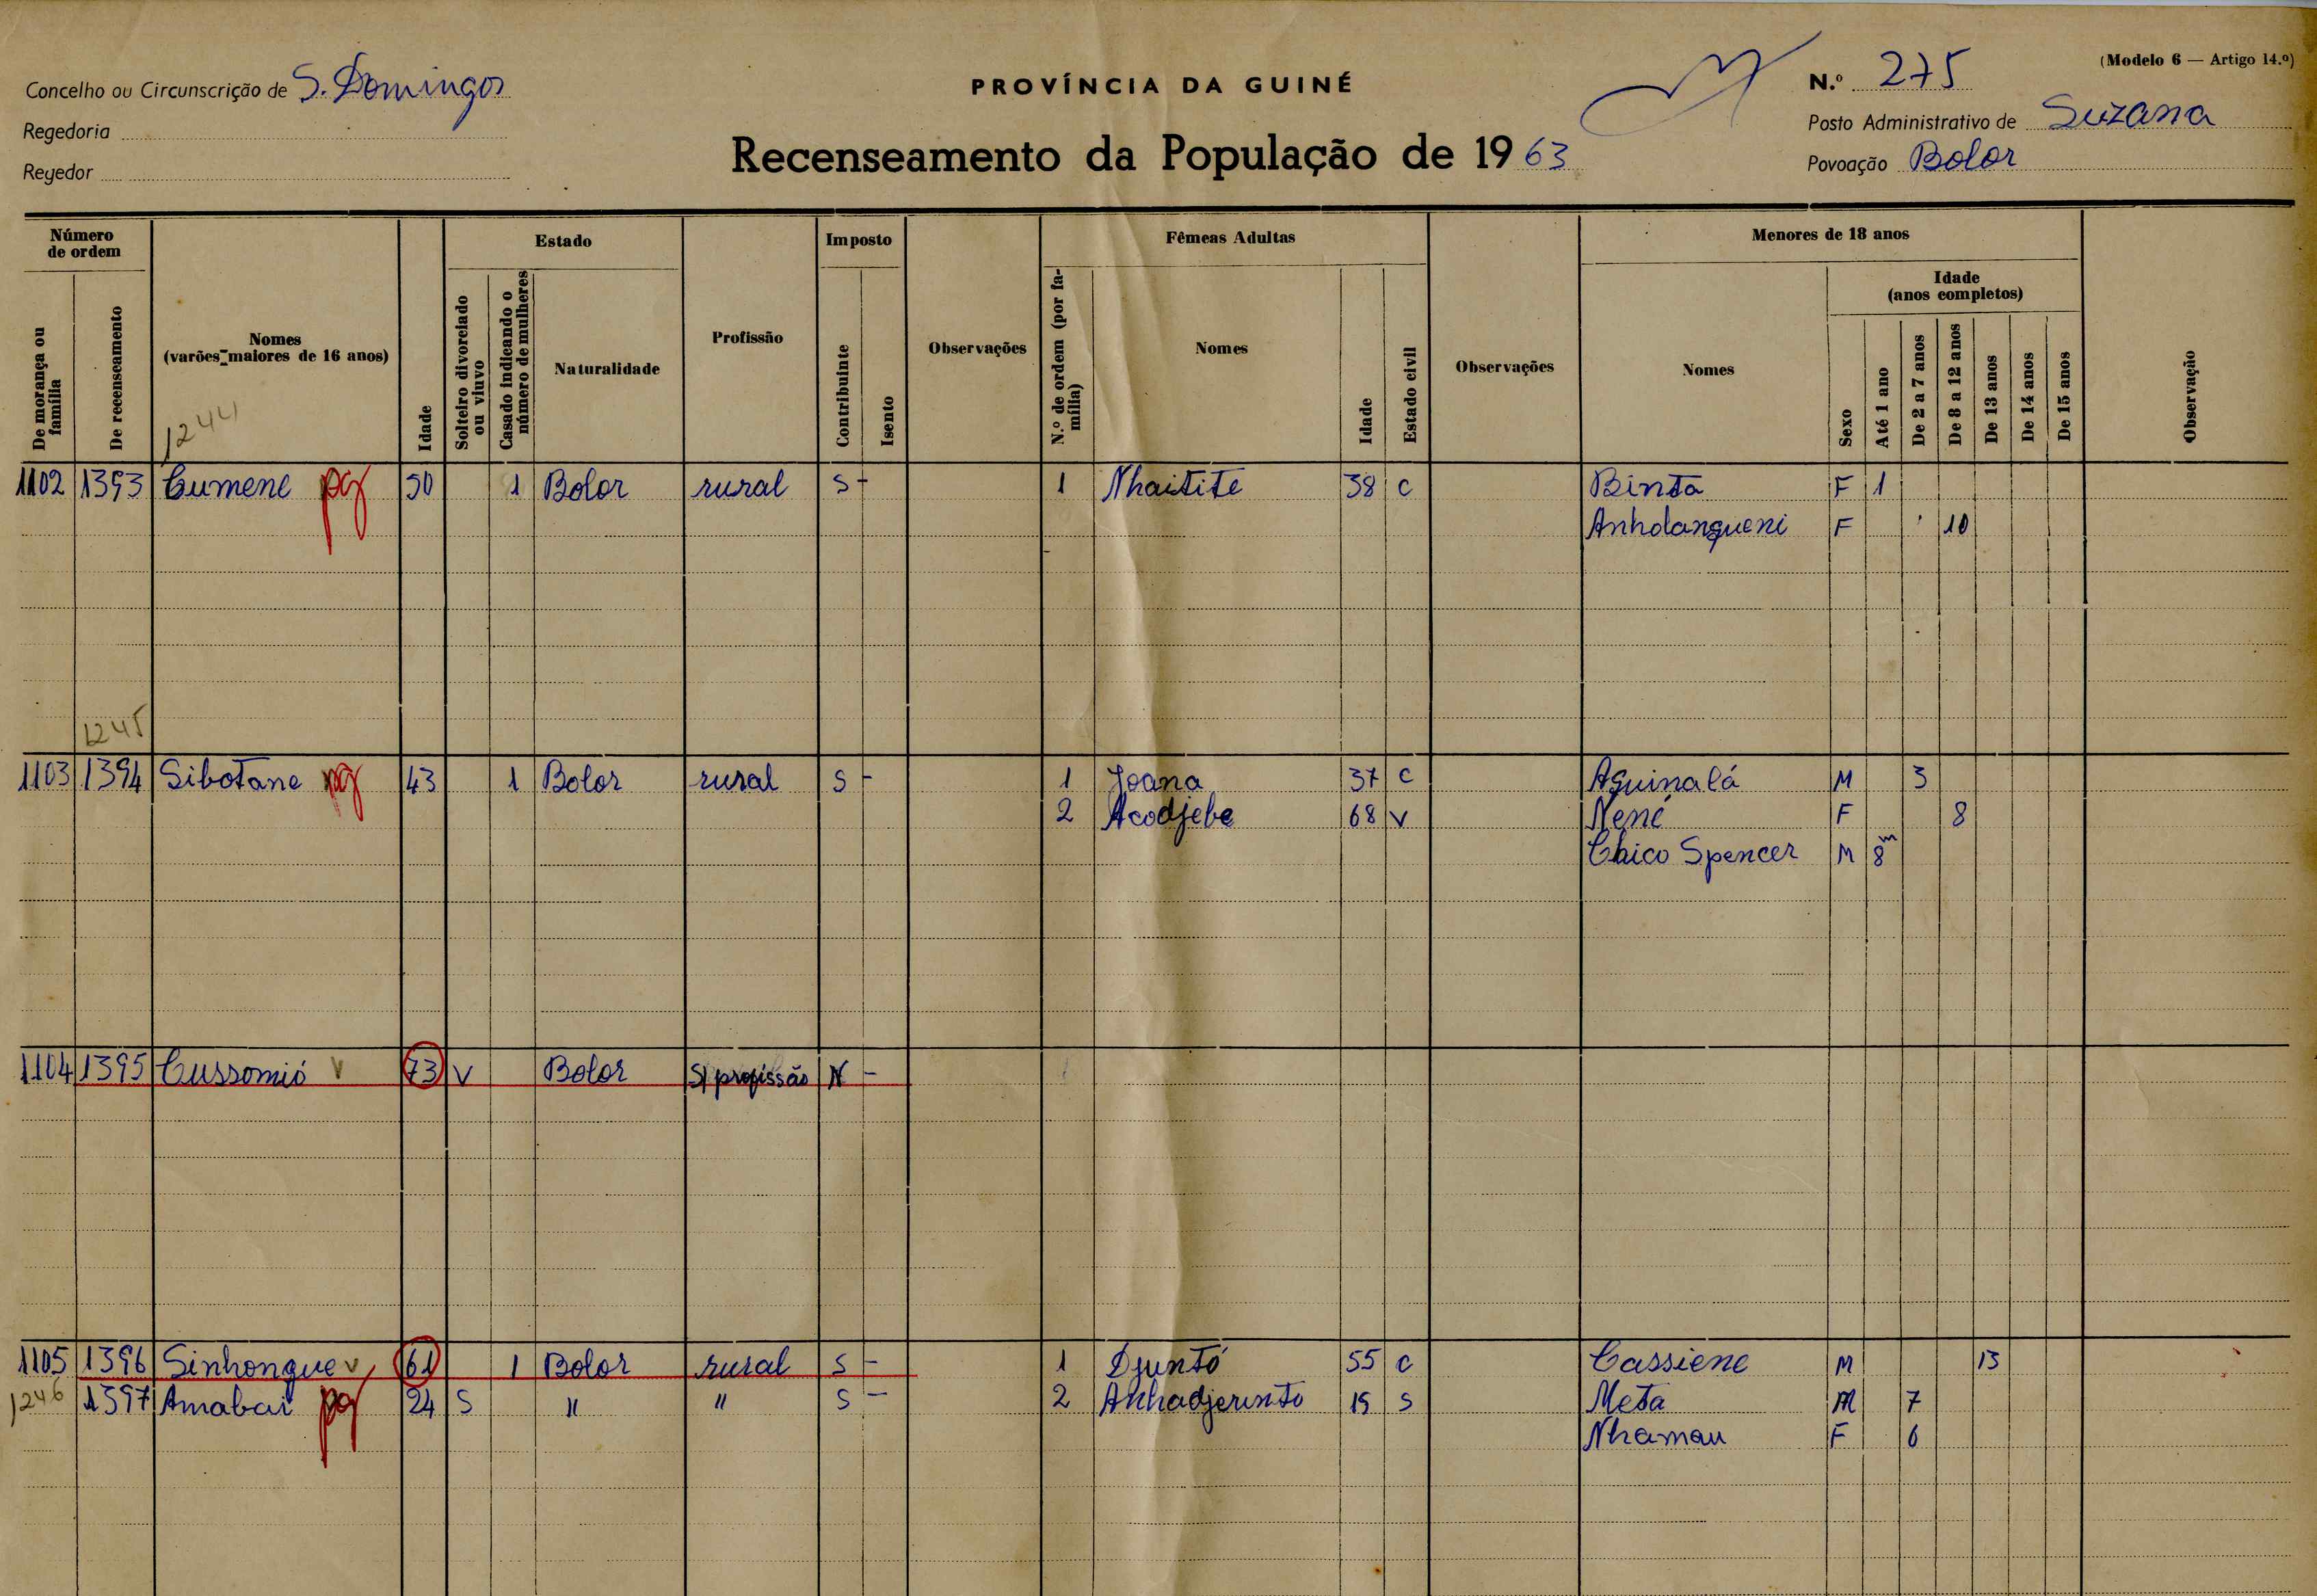 (Modelo 6 — Artigo 14.º)
Concelho ou Circunscrição de S. Domingos
PROVÍNCIA DA GUINÉ
N.º 275
Regedoria
Posto Administrativo de Suzana
Regedor
Recenseamento da População de 1963
Povoação Bolor
Número de ordem
Estado
Imposto
Fêmeas Adultas
Menores de 18 anos
Idade
(anos completos)
De morança ou família
De recenseamento
Nomes
(varões maiores de 16 anos)
Idade
Solteiro divorciado ou viuvo
Casado indicando o número de mulheres
Naturalidade
Profissão
Contribuinte
Isento
Observações
N.º de ordem (por família)
Nomes
Idade
Estado civil
Observações
Nomes
Sexo
Até 1 ano
De 2 a 7 anos
De 8 a 12 anos
De 13 anos
De 14 anos
De 15 anos
Observação
1244
1102 1393 Cumene pg 50 1 Bolor rural S - 1 Nhaitite 38 C Binta F 1
Anholangueni F 10
1245
1103 1394 Sibotane pg 43 1 Bolor rural S - 1 Joana 37 C Aguinalá M 3
2 Acodjebe 68 V Nené F 8
Chico Spencer M 8 m
1104 1395 Cussomió V 73 V Bolor S/ profissão N -
1105 1396 Sinhongue V 61 1 Bolor rural S - 1 Djuntó 55 C Cassiene M 13
1246 1397 Amabai pg 24 S " " S - 2 Anhadjerinto 19 S Meta M 7
Nhamau F 6